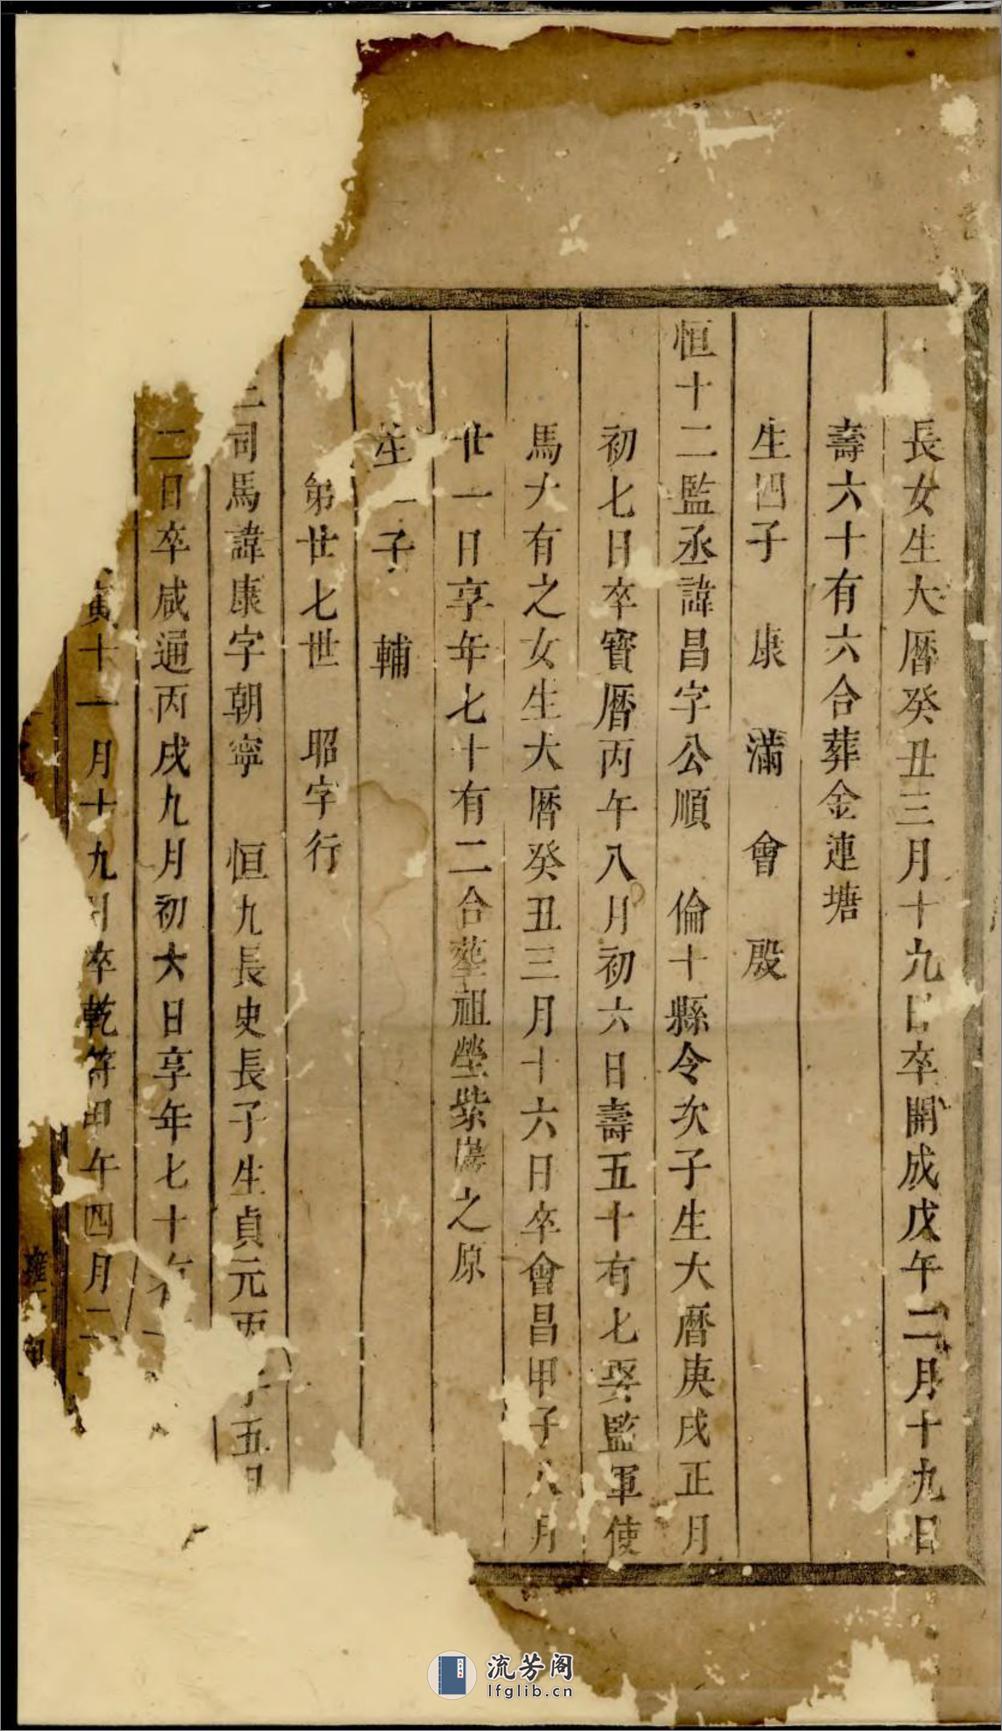 長女生大曆癸丑三月十九日卒開成戊午二月十九日
壽六十有六合葬金連塘
生四子 康 滿 會 殷
恒十二監丞諱昌字公順 倫十縣令次子生大曆庚戌正月
初七日卒寶曆丙午八月初六日壽五十有七娶監軍使
馬大有之女生大曆癸丑三月十六日卒會昌甲子八月
廿一日享年七十有二合塟祖塋紫 之原
生一子 輔
第廿七世 昭字行
二司馬諱康字朝寧 恒九長史長子生貞元丙子五月
二日卒咸通丙戌九月初六日享年七十有一
寅十一月十九日卒乾符甲午四月二
流芳阁
lfglib.cn